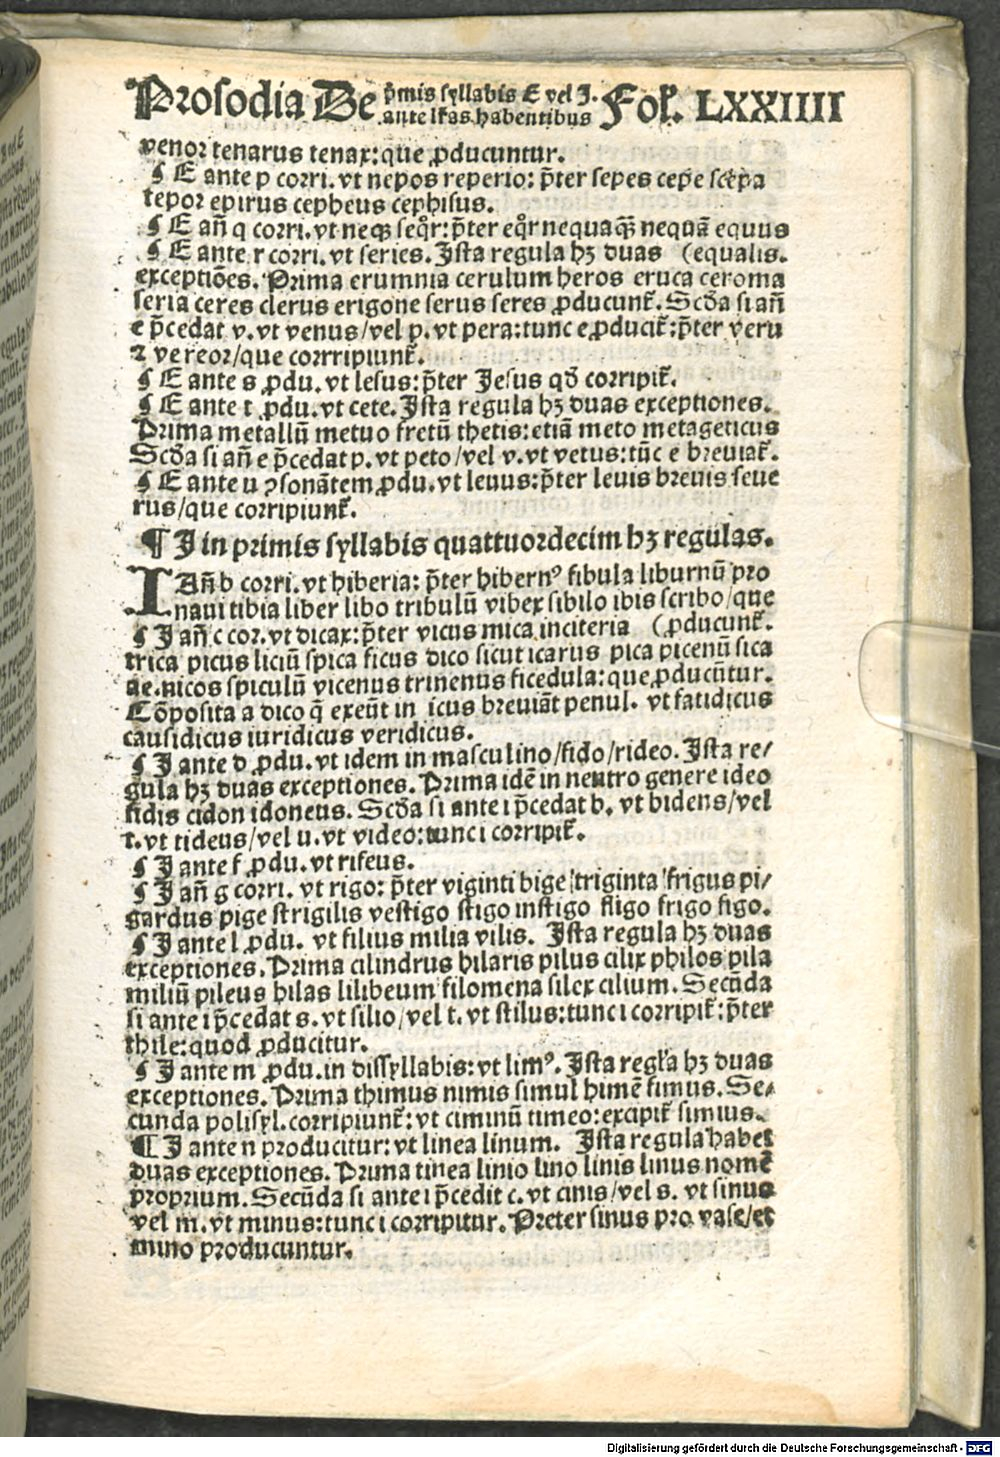 Prosodia De p̄mis syllabis E vel J. ante lr̄as habentibus Fol. LXXIIII
venor tenarus tenax: que ꝓducuntur.
¶ E ante p corri. vt nepos reperio: p̄ter sepes cepe
tepor epirus cepheus cephisus.
¶ E añ q corri. vt neqꝫ seqr̄: p̄ter eqr̄ nequaqꝫ nequā equus
¶ E ante r corri. vt series. Ista regula hꝫ duas (equalis.
exceptiões. Prima erumnia cerulum heros eruca ceroma
seria ceres clerus erigone serus seres ꝓducunt̄. Scd̄a si añ
e p̄cedat v. vt venus/vel p. vt pera: tunc e ꝓducit̄: p̄ter veru
⁊ vereor/que corrripiunt̄.
¶ E ante s ꝓdu. vt lesus: p̄ter Jesus qd̄ corripit̄.
¶ E ante t ꝓdu. vt cete. Ista regula hꝫ duas exceptiones.
Prima metallū metuo fretū thetis: etiā meto metageticus
Scd̄a si añ e p̄cedat p. vt peto/vel v. vt vetus: tūc e breviat̄.
¶ E ante u ꝯsonātem ꝓdu. vt leuus: p̄ter leuis breuis seue
rus/que corripiunt̄.
¶ J in primis syllabis quattuordecim hꝫ regulas.
I Añ b corri. vt hiberia: p̄ter hibernꝰ fibula liburnū pro
naui tibia liber libo tribulū vibex sibilo ibis scribo/que
¶ J añ c cor. vt dicax: p̄ter vicus mica inciteria (ꝓducunt̄.
trica picus liciū spica ficus dico sicut icarus pica picenū sica
ae. nicos spiculū vicenus trinenus ficedula: que ꝓducūtur.
Cōposita a dico q̄ exeūt in icus breuiāt penul. vt fatidicus
causidicus iuridicus veridicus.
¶ J ante d ꝓdu. vt idem in masculino/fido/rideo. Ista re/
gula hꝫ duas exceptiones. Prima idē in neutro genere ideo
fidis cidon idoneus. Scd̄a si ante i p̄cedat b. vt bidens/vel
t. vt tideus/vel u. vt video: tunc i corripit̄.
¶ J ante f ꝓdu. vt rifeus.
¶ J añ g corri. vt rigo: p̄ter viginti bige triginta frigus pi/
gardus pige strigilis vestigo stigo instigo fligo frigo figo.
¶ J ante l ꝓdu. vt filius milia vilis. Ista regula hꝫ duas
exceptiones. Prima cilindrus hilaris pilus cilix philos pila
miliū pileus hilas lilibeum filomena silex cilium. Secūda
si ante i p̄cedat s. vt silio/vel t. vt stilus: tunc i corripit̄: p̄ter
thile: quod ꝓducitur.
¶ J ante m ꝓdu. in dissyllabis: vt limꝰ. Ista regl̄a hꝫ duas
exceptiones. Prima thimus nimis simul himē fimus. Se/
cunda polisyl. corripiunt̄: vt ciminū timeo: excipit̄ simius.
¶ J ante n producitur: vt linea linum. Ista regula habet
duas exceptiones. Prima tinea linio lino linis linus nomē
proprium. Secūda si ante i p̄cedit c. vt cinis/vel s. vt sinus
vel m. vt minus: tunc i corripitur. Preter sinus pro vase/et
mino producuntur.
Digitalisierung gefördert durch die Deutsche Forschungsgemeinschaft - DFG